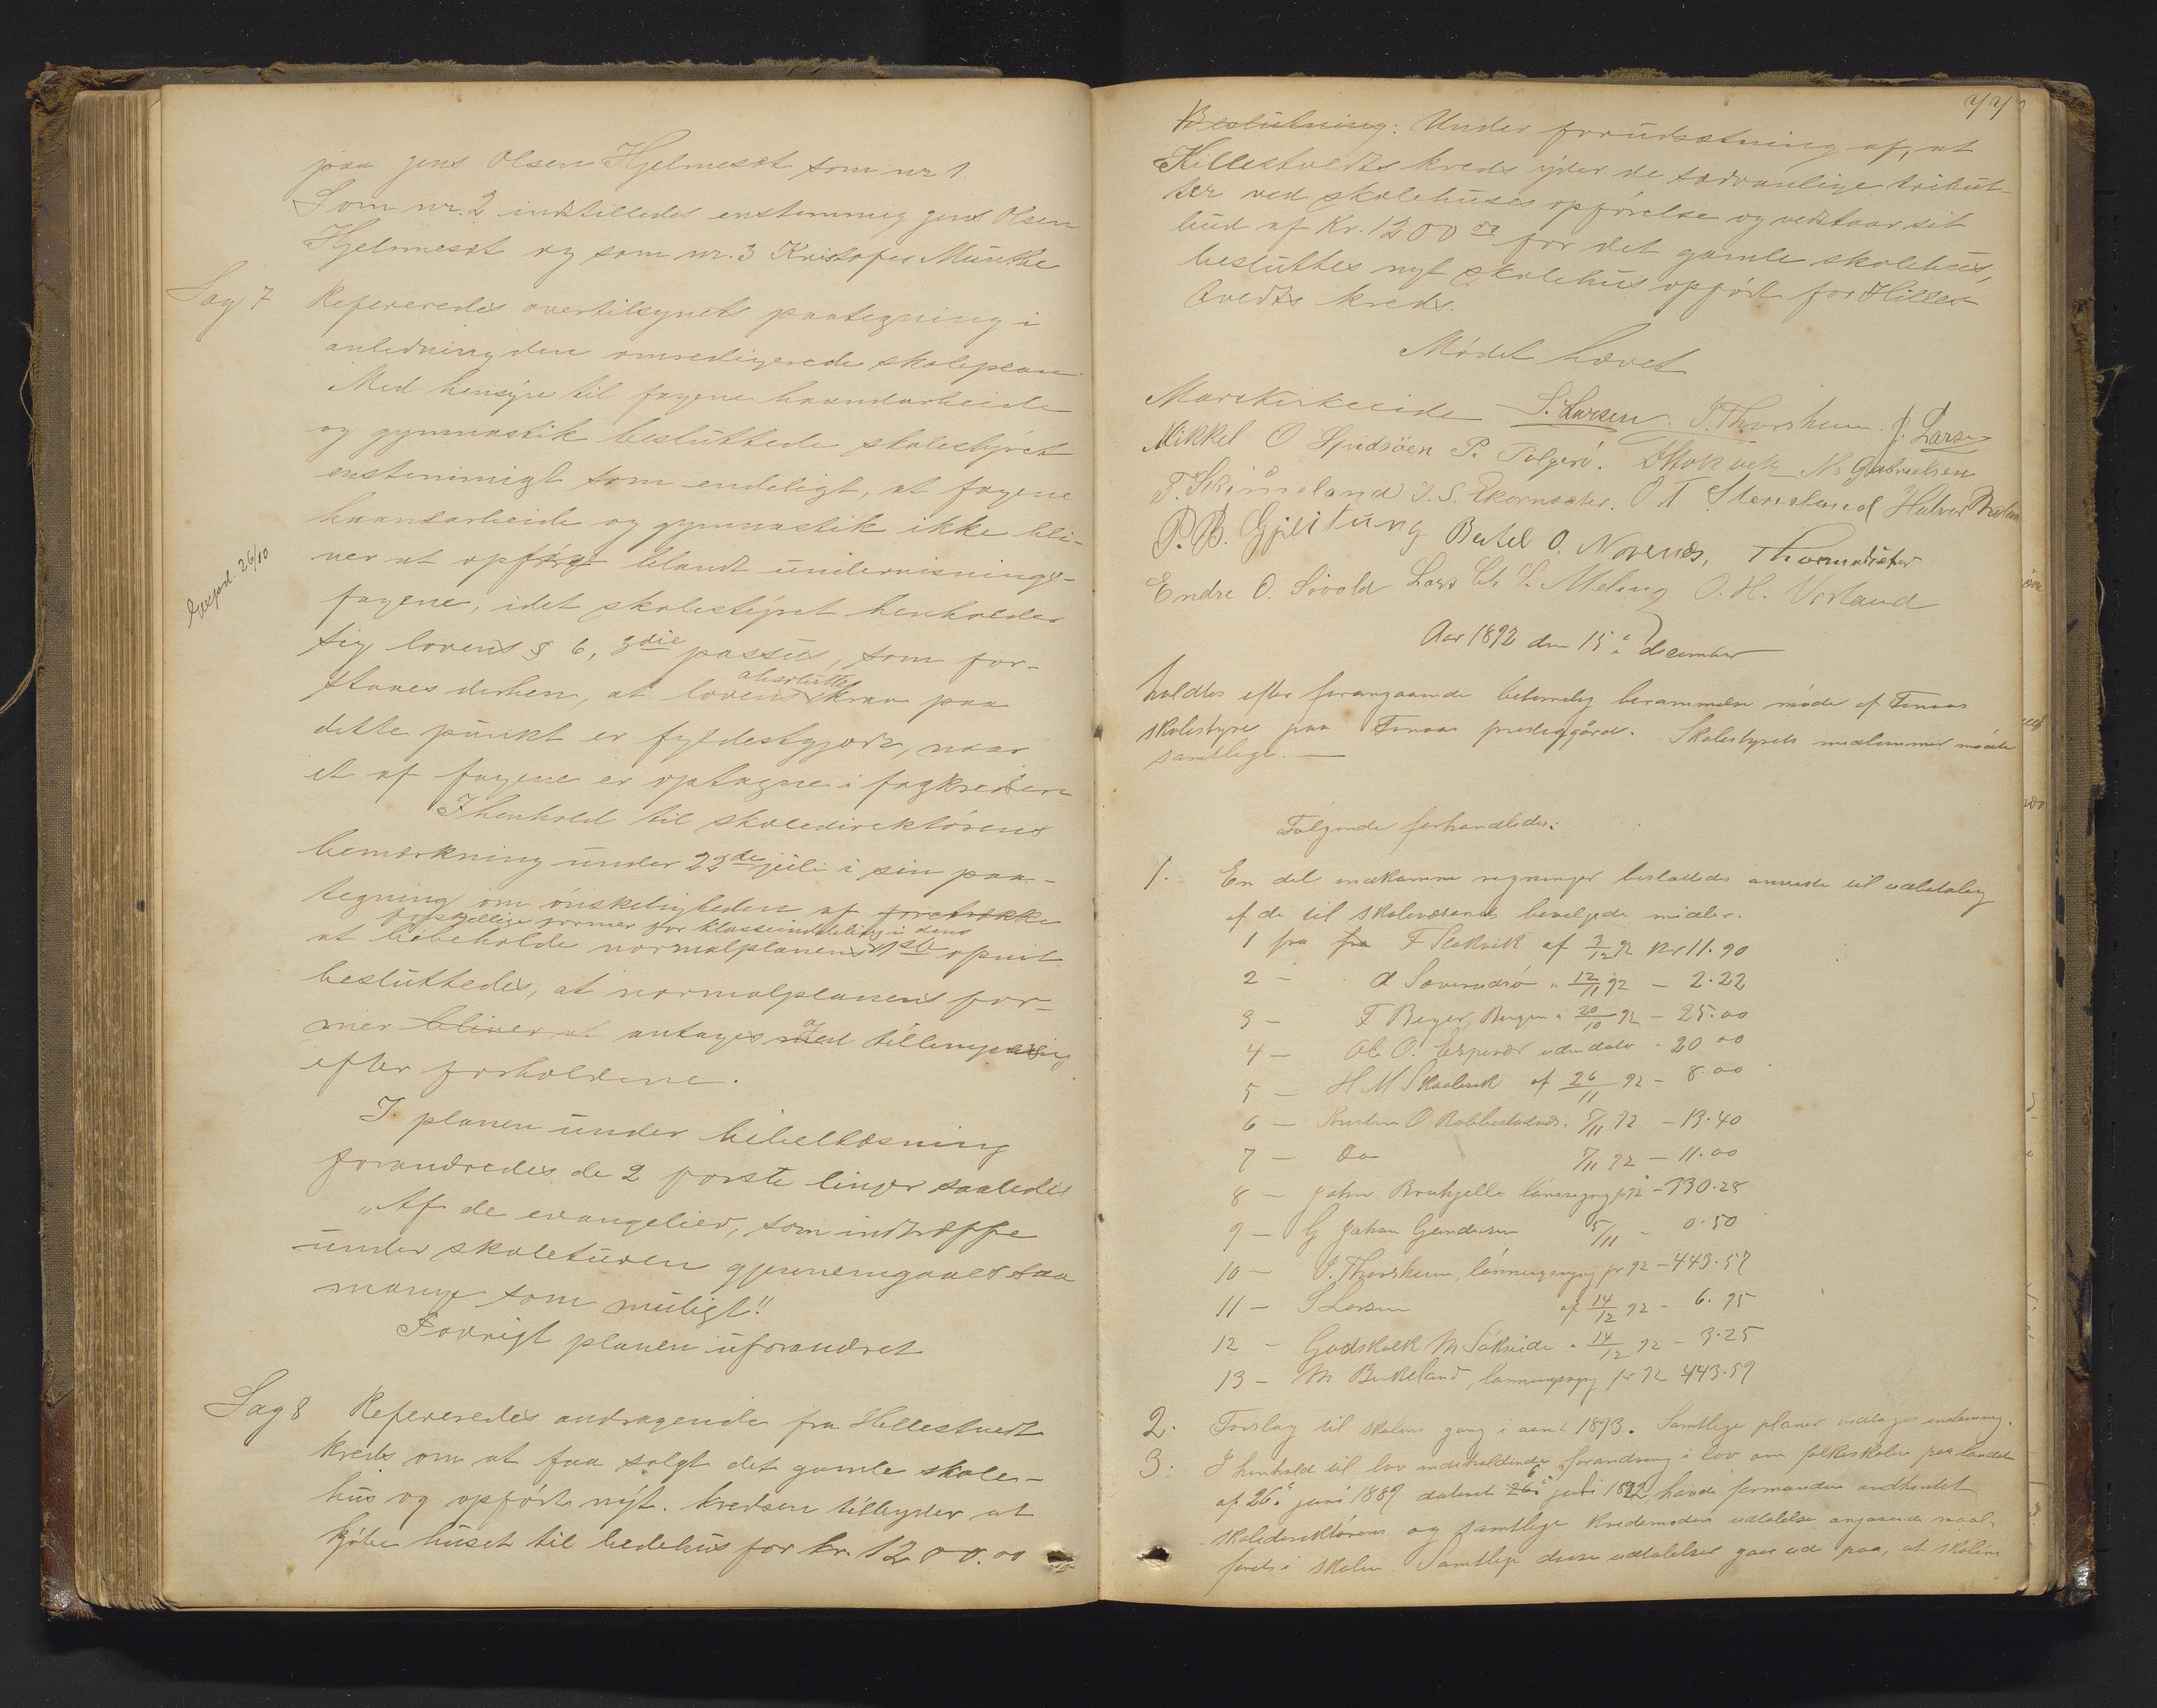 paa Jens Olsen Hjelmesæt som nr 1.
Som nr. 2 indstilledes enstemmig Jens Olsen
Hjelmesæt og som nr. 3 Kristofer Munthe
Sag 7 Refereredes overtilsynets paategning i
anledning den omredigerede skoleplan.
Med hensyn til fagene haandarbeide
og gymnastik besluttede skolestyret
enstemmigt som endeligt, at fagene
haandarbeide og gymnastik ikke bli-
ver at opføre blandt undervisnings-
Exped. 26/10
fagene, idet skolestyret henholder
sig lovens § 6, 3die passus, som for-
staaes derhen, at lovens absolutte krav paa
dette punkt er fyldestgjort, naar
et af fagene er optagne i fagkredsen
I henhold til skoledirektørens
bemærkning under 22de juli i sin paa-
tegning om ønskeligheden af foretrække
forskjellige former for klasseinddeling i dens
at bibeholde normalplanens 1ste opsæt
besluttedes, at normalplanens for-
mer bliver at antages med tillempning
efter forholdene.
I planen under bibellæsning
forandredes de 2 første linjer saaledes
"Af de evangelier, som indtræffe
under skoleturen gjennemgaaes saa
mange som muligt!!
Iøvrigt planen uforandret
Sag 8 Refereredes andragende fra Hillestvedt
kreds om at faa solgt det gamle skole-
hus og opført nyt. Kredsen tilbyder at
kjøbe huset til bedehus for kr. 1200.00
77
Beslutning: Under forudsætning af, at
Hillestvedts kreds yder de sædvanlige tribut-
ter ved skolehuses opførelse og vedstaar sit
bud af Kr. 1200 00 for det gamle skolehus,
besluttes nyt skolehus opført for Hilles-
tvedts kreds.
Mødet hævet
Mons Kirkeeide S. Larsen. J. Thorsheim. J. Larsen
Mikkel O Spidsöen P. Folgerö. Stokvik N. Gabrielsen
T. Skimmeland J. S. Ekornsæter. O T Stensland Halvor
P. B. Gjeitung Bertel O. Novenæs, Thormodsæter
Endre O. Sövold Lars Ch S. Meling O. H. Vorland
Aar 1892 den 15de december
holdtes efter forangaaende betimelig berammelse møde af Finaas
skolestyre paa Finaas prestegård. Skolestyrets medlemmer mødte
samtlige. —
Følgende forhandledes:
1. En del indkomne regninger besluttedes anviste til udbetaling
af de til skolevæsenet bevilgede midler.
1 fra fra F Stokvik af 3/12 92 Kr 11.90
2 - A Søverudsø " 12/11 92 - 2.22
3 - F Beyer, Bergen " 20/10 92 - 25.00
4 - Ol O. Espevær uden dato - 20 00
5 - H M Skaaluvik af 26/11 92 - 8.00
6 - Kristen O Robbestadnes. 5/11 92 - 13.40
7 - Do 5/11 92 - 11.00
8 - Johan Brakjelle lønregng pr 92 - 330.28
9 - G Johan Gundersen 5/11 - 0.50
10 - J. Thorsheim, lønningsregng pr 92 - 443.57
11 - S Larsen af 14/12 92 - 6.95
12 - Godskalk M Siknide " 14/12 92 - 3.25
13 - M Birkeland, lønningsregng pr 92 443.59
2. Forslag til skolens gang i aaret 1893. Samtlige planer vedtages enstemmig.
3: I henhold til lov indeholdende forandring i lov om folkeskolen paa landet
af 26de juni 1889 dateret 26 6te juli 1892 havde formanden indhentet
skoledirektørens og samtlige kredsmøders udtalelse angaaende maal-
førets i skolen. Samtlige disse udtalelser gaar ud paa, at skolens